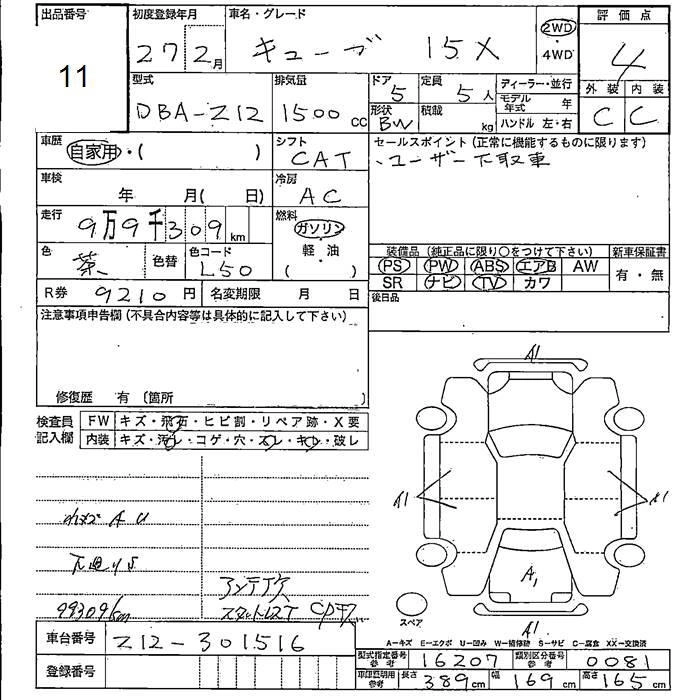 出品番号 11
初度登録年月 27 2月
車名・グレード キューブ 15X
2WD・4WD
評価点 4
外装 C 内装 C
型式 DBA-Z12
排気量 1500cc
ドア 5 定員 5人
形状 BW 積載 kg
ディーラー・並行
モデル年式 年
ハンドル 左・右
車歴 自家用・( )
シフト CAT
セールスポイント (正常に機能するものに限ります)
ユーザー下取車
車検 年 月( 日)
冷房 AC
走行 9万9千309km
燃料 ガソリン・軽・油 ( )
色 茶 色替 色コード L50
装備品 (純正品に限り○をつけて下さい) 新車保証書
PS PW ABS エアB AW 有・無
SR ナビ TV カワ
R券 9210円 名変期限 月 日
後日品
注意事項申告欄 (不具合内容等は具体的に記入して下さい)
修復歴 有 (箇所 )
検査員記入欄 FW キズ・飛石・ヒビ割・リペア跡・X要
内装 キズ・汚レ・コゲ・穴・スレ・キレ・破レ
A U
99309km
アンテナ穴
A1
A1
A1
A1
A1
スペア
A-キズ E-エクボ U-凹み W-補修跡 S-サビ C-腐食 XX-交換済
車台番号 Z12-301516
登録番号
型式指定番号 参考 16207 類別区分番号 参考 0081
車庫証明用 参考 長さ 389cm 幅 169cm 高さ 165cm